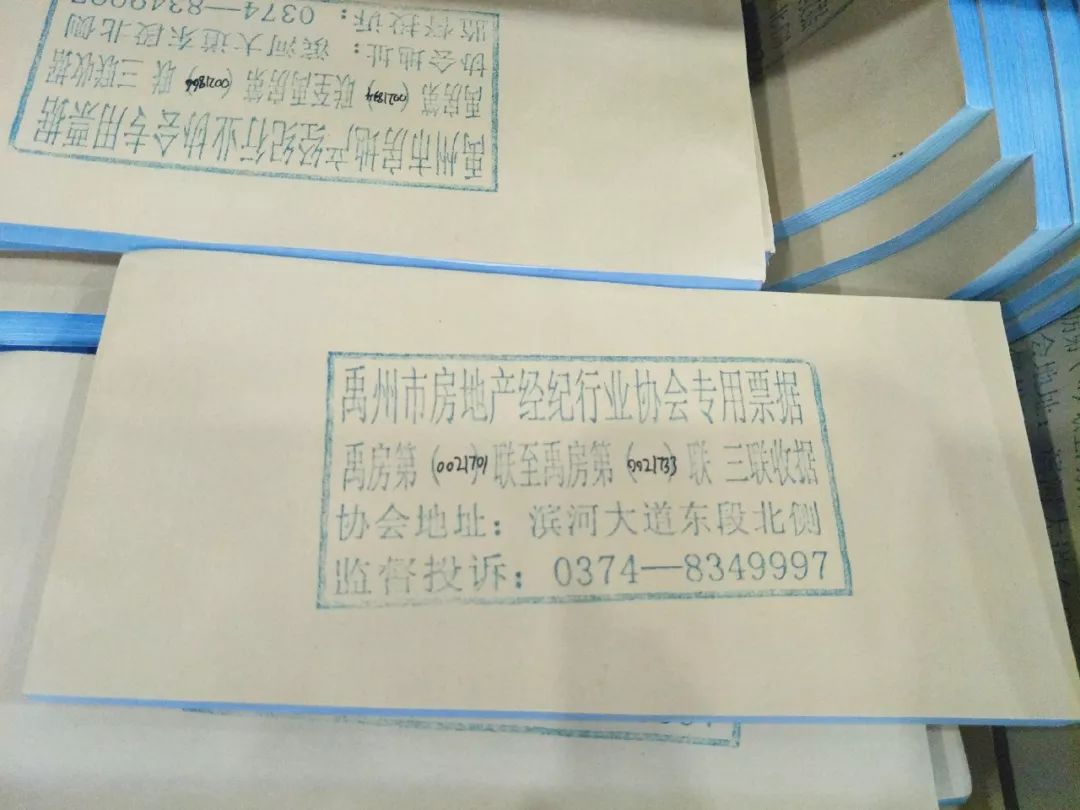 监督投诉：0374—8349997
协会地址：滨河大道东段北侧
禹房第（）联至禹房第（）联 三联收据
禹州市房地产经纪行业协会专用票据
禹州市房地产经纪行业协会专用票据
禹房第（0021701）联至禹房第（0021733）联 三联收据
协会地址：滨河大道东段北侧
监督投诉：0374—8349997